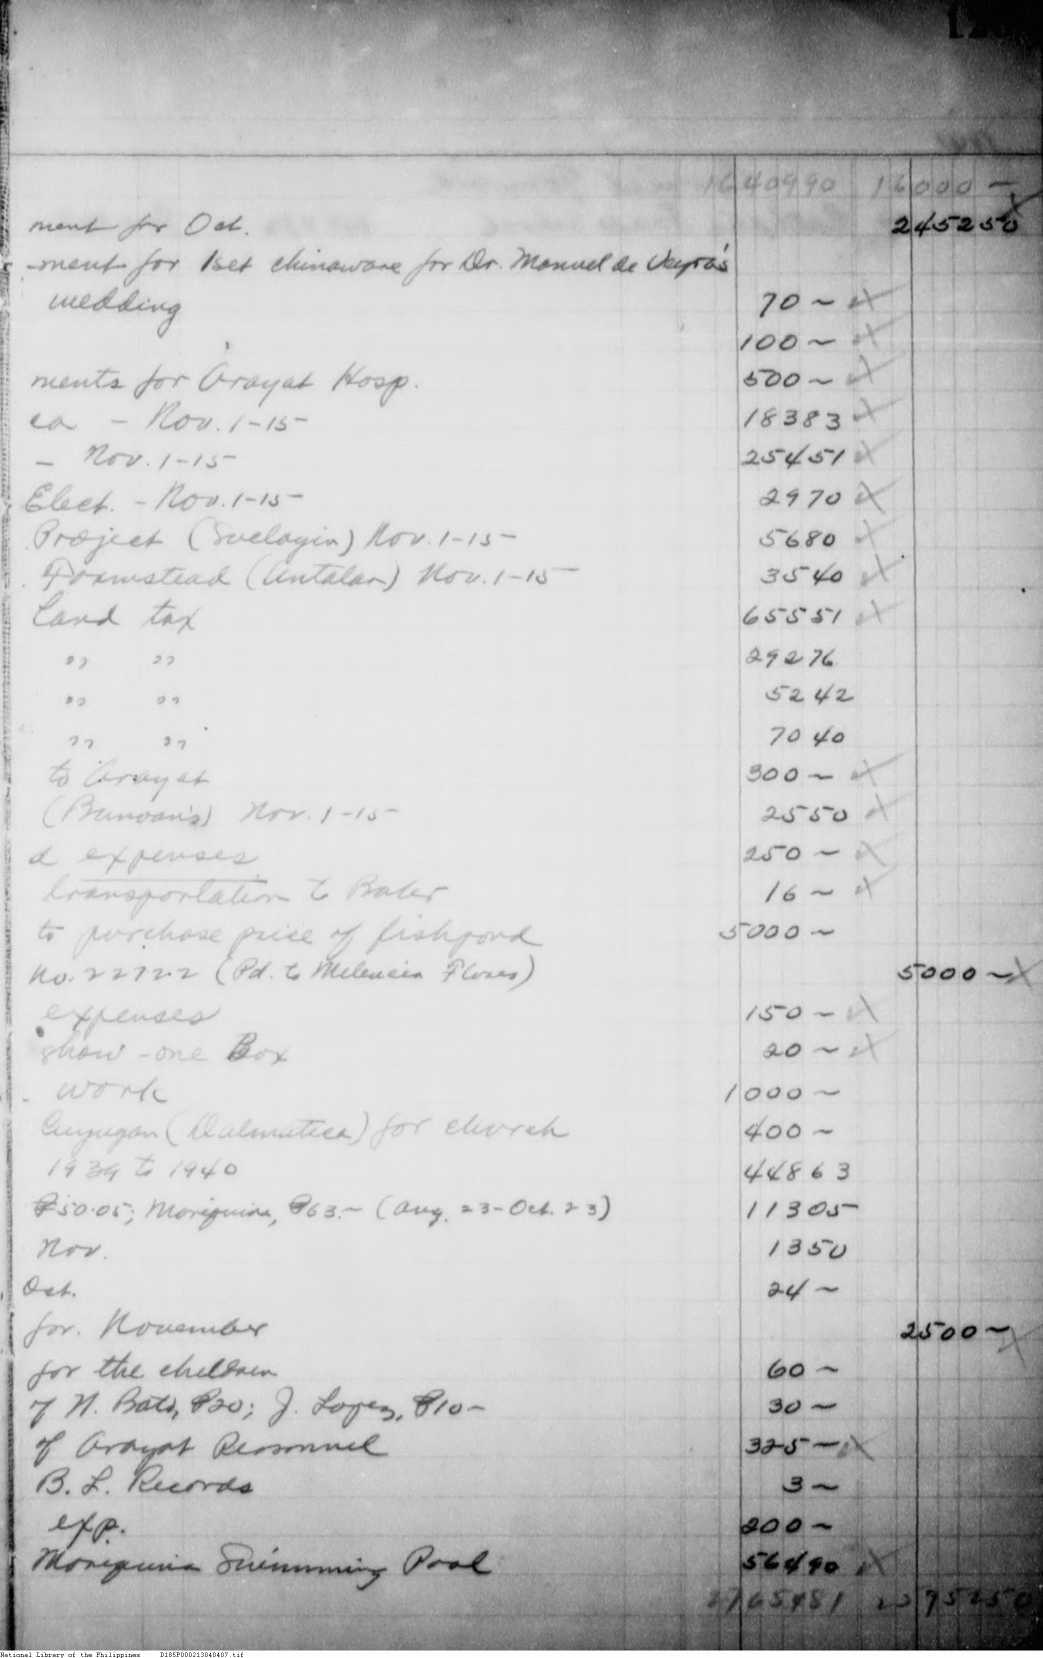 1640990 16000 —
ment for Oct. 245250
ment for 1set chinaware for Dr. Manuel de Veyra's
wedding 70 —
100 —
ments for Arayat Hosp. 500 —
ca — Nov. 1-15 18383
— Nov. 1-15 25451
Elect. — Nov. 1-15 2970
Project (Suclayin) Nov. 1-15 5680
Farmstead (Antalan) Nov. 1-15 3540
Land tax 65551
" " 29276
" " 5242
" " 7040
to Arayat 300 —
Nov. 1-15 2550
d expenses 250 —
transportation to Baler 16 —
to purchase price of fishpond 5000 —
no. 22722 (Pd. to Melencia Flores) 5000 —
expenses 150 —
show - one Box 20 —
work 1000 —
(Dalmatica) for church 400 —
1939 to 1940 44863
₱50.05; Mariquina, ₱63.— (Aug. 23-Oct. 23) 11305
Nov. 1350
Oct. 24 —
for November 2500 —
for the children 60 —
of N. Bato, ₱20; J. Lopez, ₱10 — 30 —
of Arayat Personnel 325 —
B. L. Records 3 —
exp. 200 —
Mariquina Swimming Pool 56490
2765481 2395250
National Library of the Philippines D185P000213040407.tif